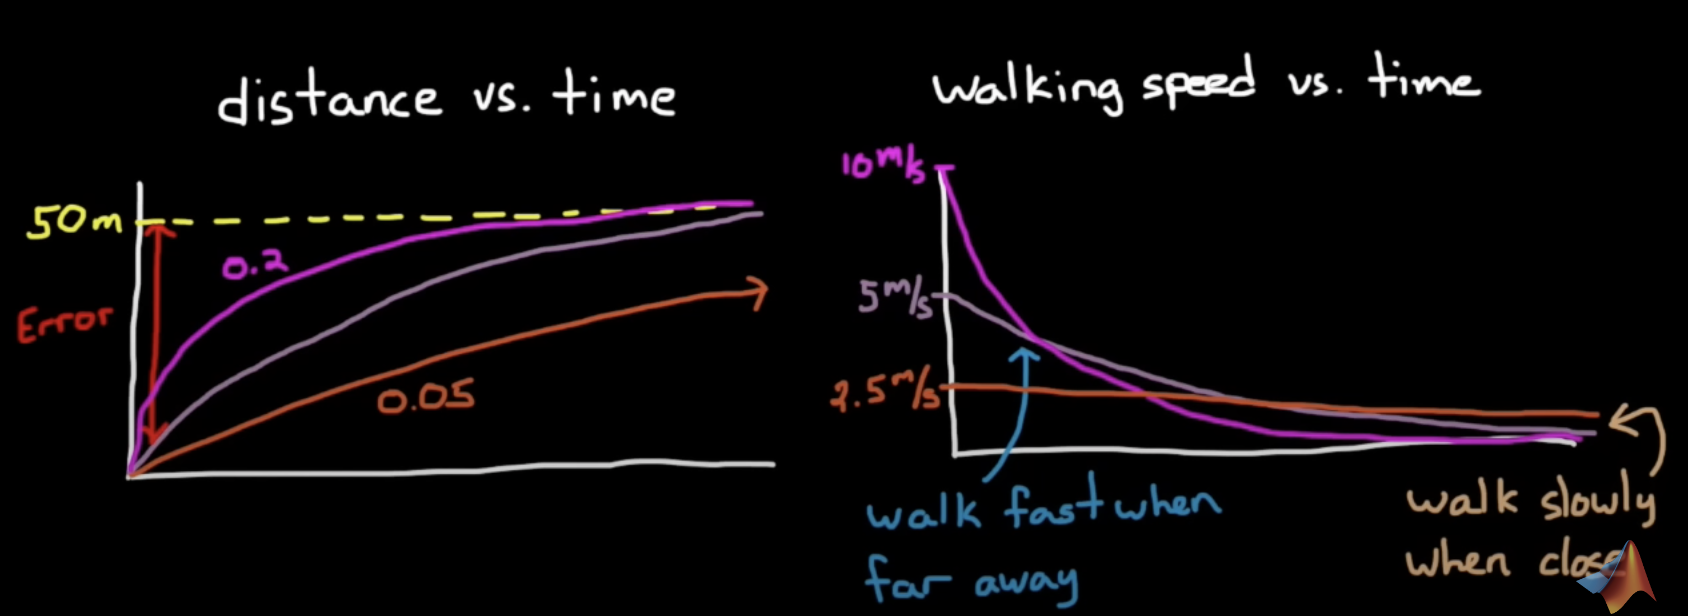 distance vs. time
50m
Error
0.2
0.05
walking speed vs. time
10m/s
5m/s
2.5m/s
walk fast when
far away
walk slowly
when close